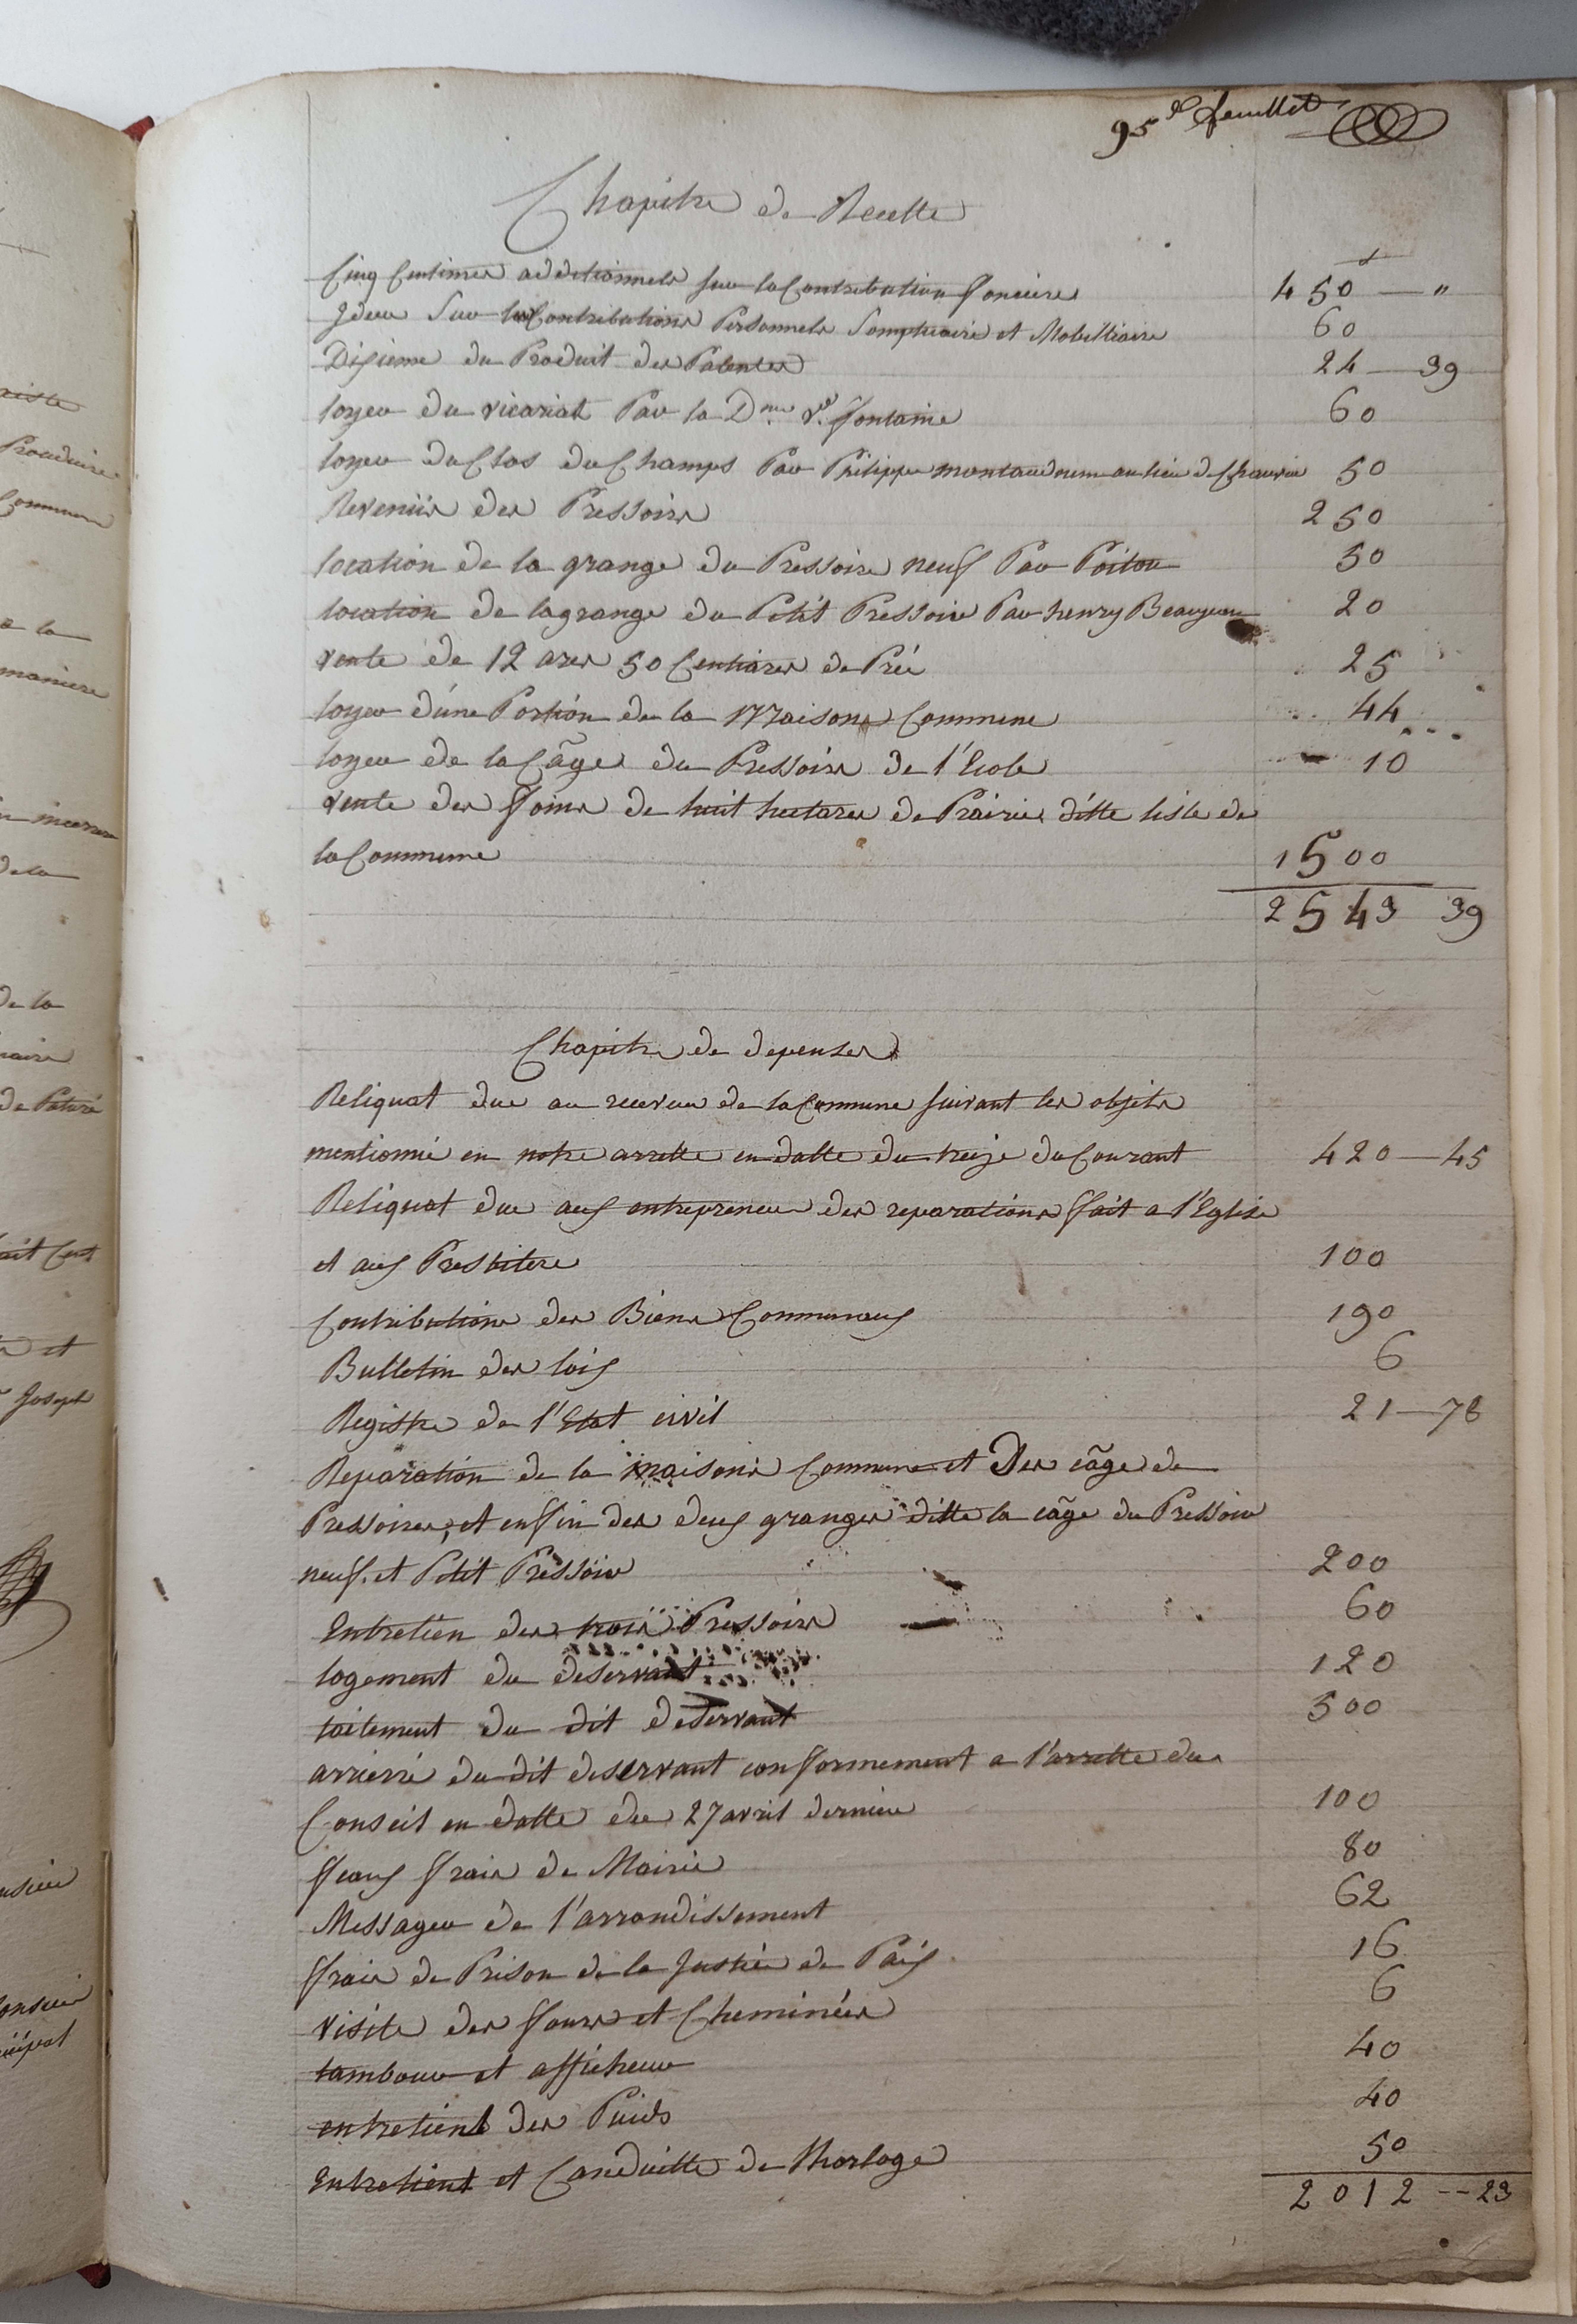 95e feuillet
Chapitre de Recette
Cinq Centimes additionnels sur la Contribution fonciere 450 — "
Idem Sur les Contributions Personnels Somptuaire et Mobilliaire 60
Dixieme du Produit des Patentes 24 — 39
loyer du vicariat Par la Dme Ve fontaine 60
loyer du Clos du Champs Par Philippe montaudouin au lieu de Chauvin 50
Revenüs des Pressoirs 250
location de la grange du Pressoire neuf Par Poitou 50
location de la grange du Petit Pressoir Par henry Beaujeau 20
vente de 12 ares 50 Centiares de Pré 25
loyer d'une Portion de la Maisons Commune 44
loyer de la Câge du Pressoire de l'Ecole 10
vente des foins de huit hectares de Prairie ditte lisle de
la Commune 1500
2543 39
Chapitre de depenses
Reliquat due au receveur de la Commune suivant les objets
mentionné en notre arrette en datte du treize du Courant 420 — 45
Reliquat due aux entrepreneur des reparations fait a l'Eglise
et aux Presbitere 100
Contributions des Biens Communaux 190
Bulletin des loix 6
Registre de l'Etat civil 21 — 78
Reparation de la maisons Commune et Des câge de
Pressoires, et enfin des deux granges ditte la câge du Pressoir
neuf. et Petit Pressoir 200
Entretien des trois Pressoirs 60
logement du deservant 120
taitement du dit deservant 500
arrierré du dit deservant conformement a l'arrette du
Conseil en datte du 27 avril dernier 100
feaux frais de Mairie 80
Messager de l'arrondissement 62
frais de Prison de la Justice de Paix 16
visite des fours et Cheminées 6
tambour et afficheur 40
entretient des Puids 40
Entretient et Conduitte de lhorloge 50
2012 -- 23